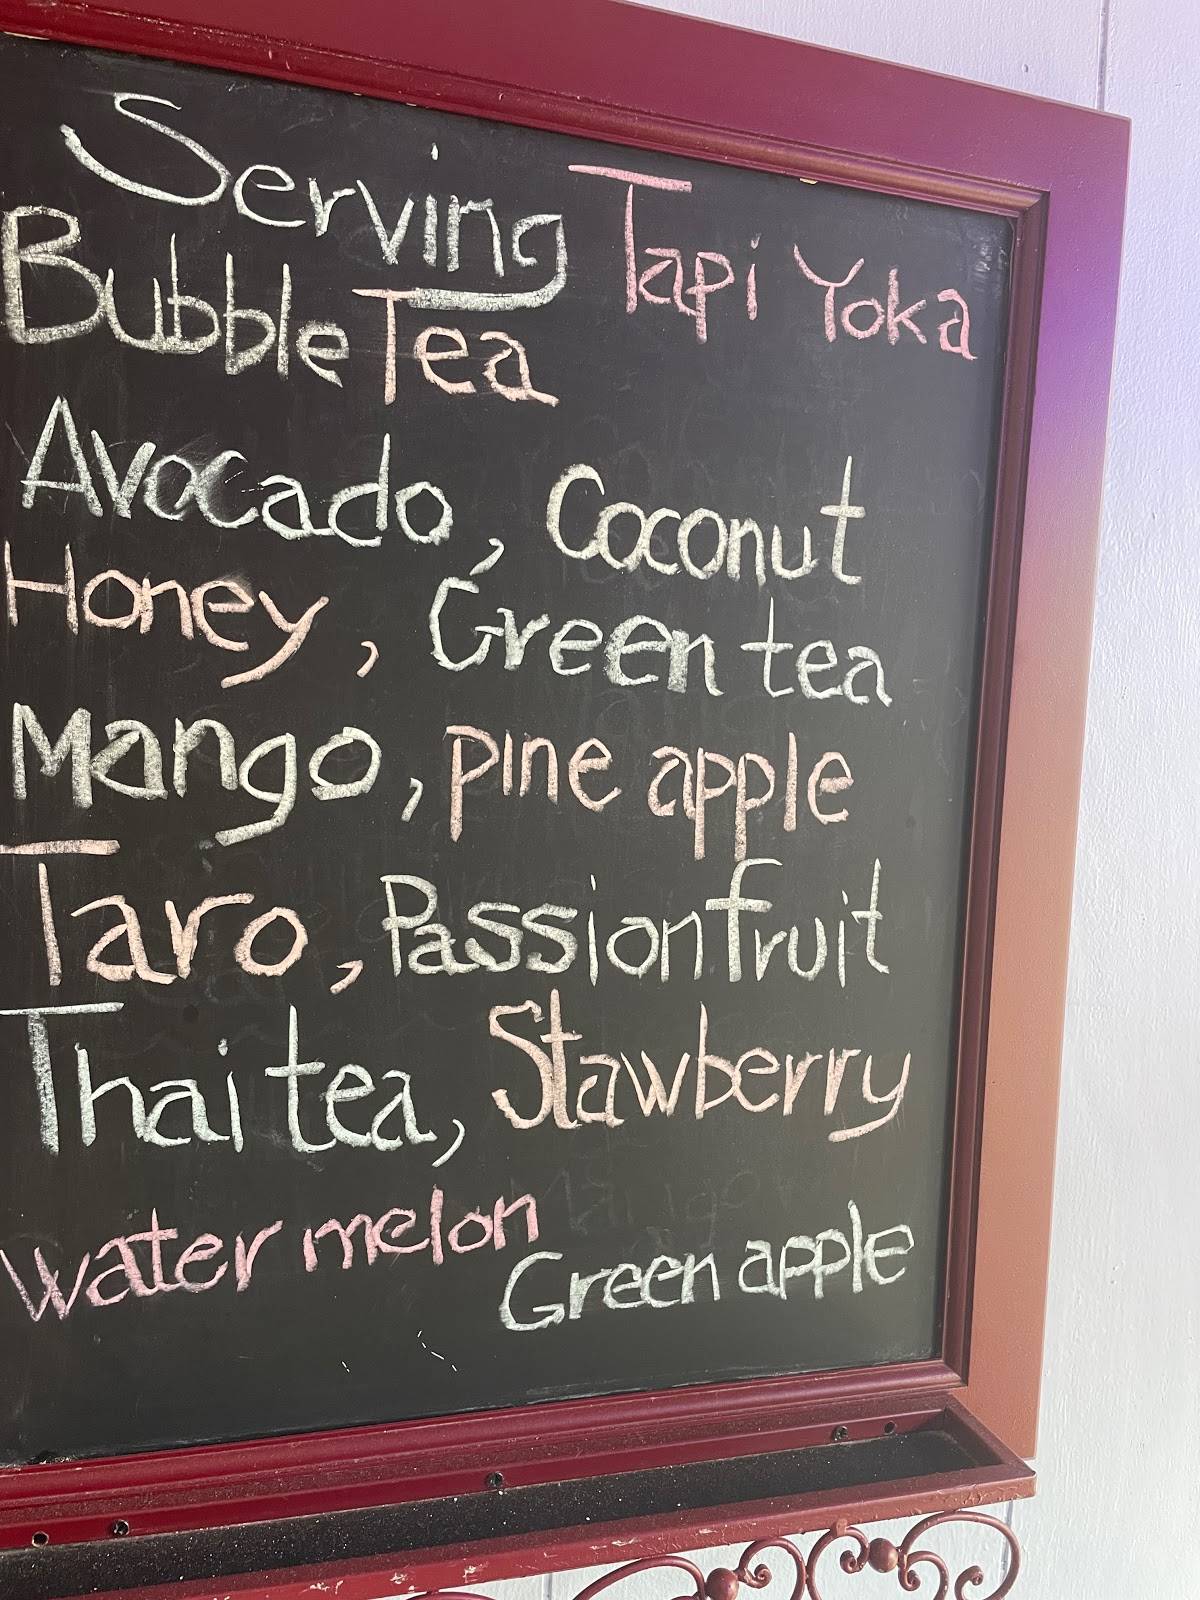 Serving Tapi Yoka
Bubble Tea
Avocado, Coconut
Honey, Green tea
Mango, pine apple
Taro, Passion fruit
Thai tea, Stawberry
Water melon
Green apple